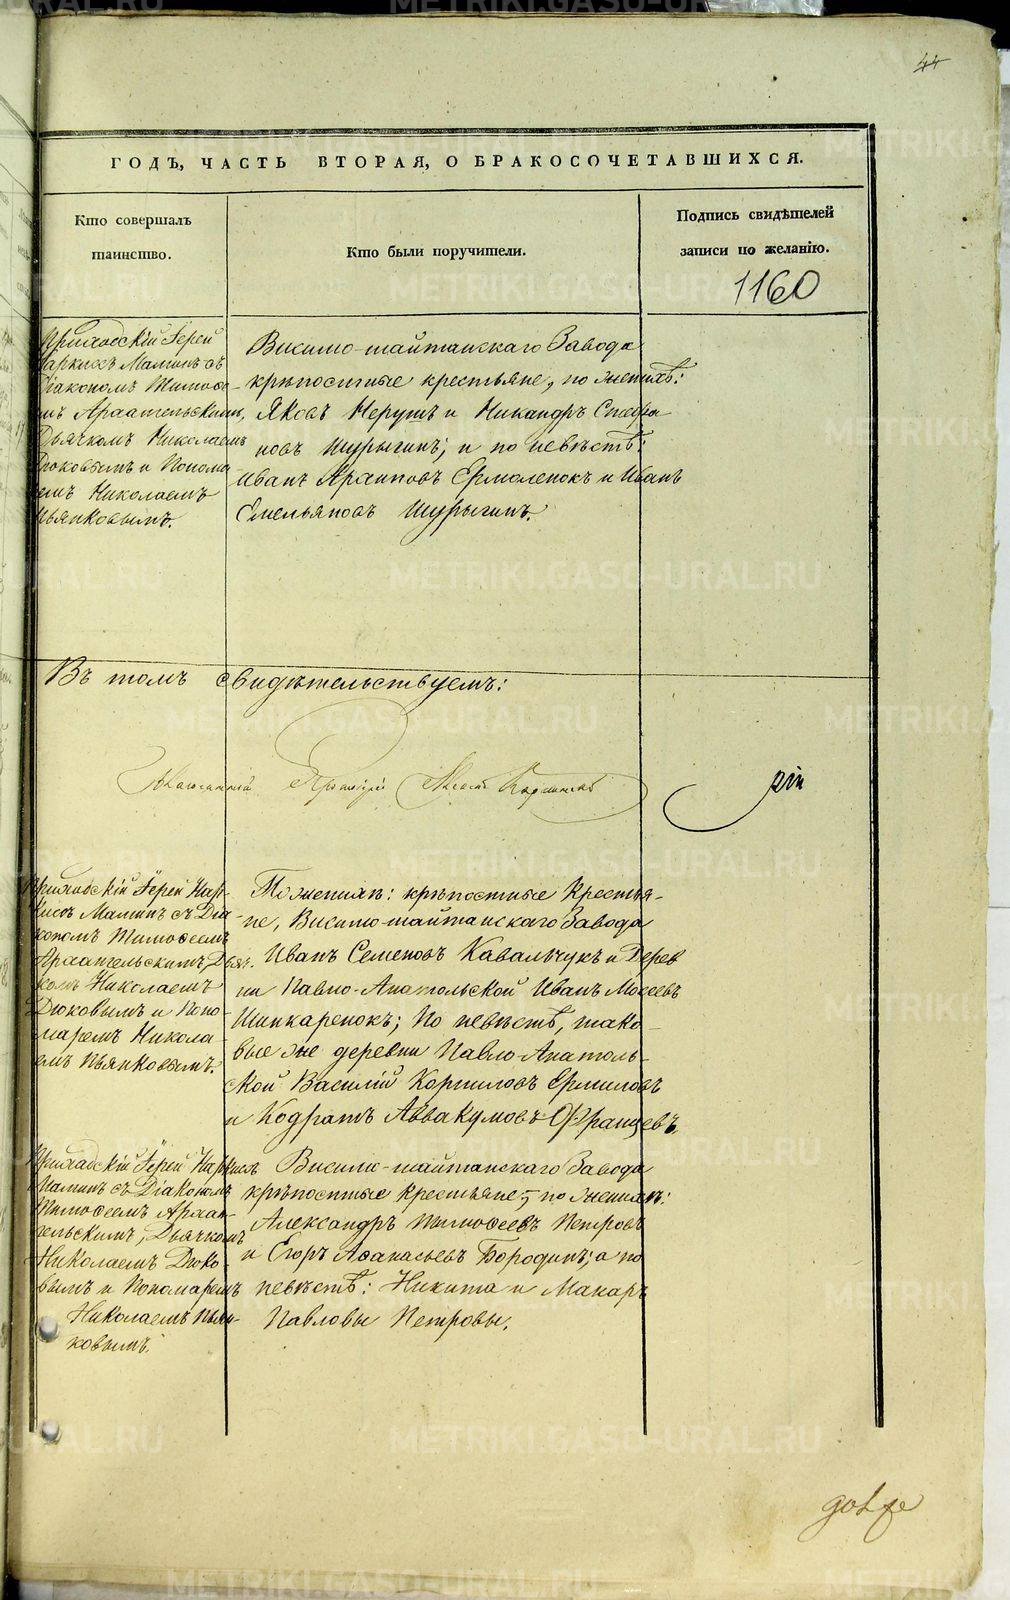 44
ГОДЪ, ЧАСТЬ ВТОРАЯ, О БРАКОСОЧЕТАВШИХСЯ.
Кто совершалъ
таинство.
Кто были поручители.
Подпись свидѣтелей
записи по желанію.
1160
Приходскій Іерей
Наркисъ Маминъ съ
Діакономъ Тимоѳе-
емъ Арааительскимъ,
Дьячкомъ Николаемъ
Дюковымъ и Понома
ремъ Николаемъ
Пьянковымъ.
Висимо-шайтанскаго Завода
крѣпостные крестьяне, по женихѣ:
Яковъ Нерушъ и Никандръ
Шурыгинъ; и по невѣстѣ:
Иванъ Архиповъ Ермоленокъ и Иванъ
Емельяновъ Шурыгинъ.
Въ томъ свидѣтельствуемъ:
Приходскій Іерей Нар-
кисъ Маминъ съ Діа-
кономъ Тимоѳеемъ
Арааительскимъ, Дьяч-
комъ Николаемъ
Дюковымъ и Поно-
маремъ Никола-
емъ Пьянковымъ.
По женихѣ: крѣпостные Крестья-
не, Висимо-шайтанскаго Завода
Иванъ Семеновъ Кавальчукъ и Дерев
ни Павло-Анатольской Иванъ Мокеевъ
Шинкаренокъ; По невѣстѣ, тако-
вые же деревни Павло-Анатоль-
ской Василій Корниловъ Ермиловъ
и Кодратъ Аввакумовъ Францевъ.
Приходскій Іерей Наркисъ
Маминъ съ Діакономъ
Тимоѳеемъ Арааи-
тельскимъ, Дьячкомъ
Николаемъ Дюко-
вымъ и Пономаремъ
Николаемъ Пьян-
ковымъ.
Висимо-шайтанскаго Завода
крѣпостные крестьяне, по женихѣ:
Александръ Тимоѳеевъ Петровъ
и Егоръ Аѳанасьевъ Бородинъ, а по
невѣстѣ: Никита и Макаръ
Павловы Петровы.
METRIKI.GASO-URAL.RU